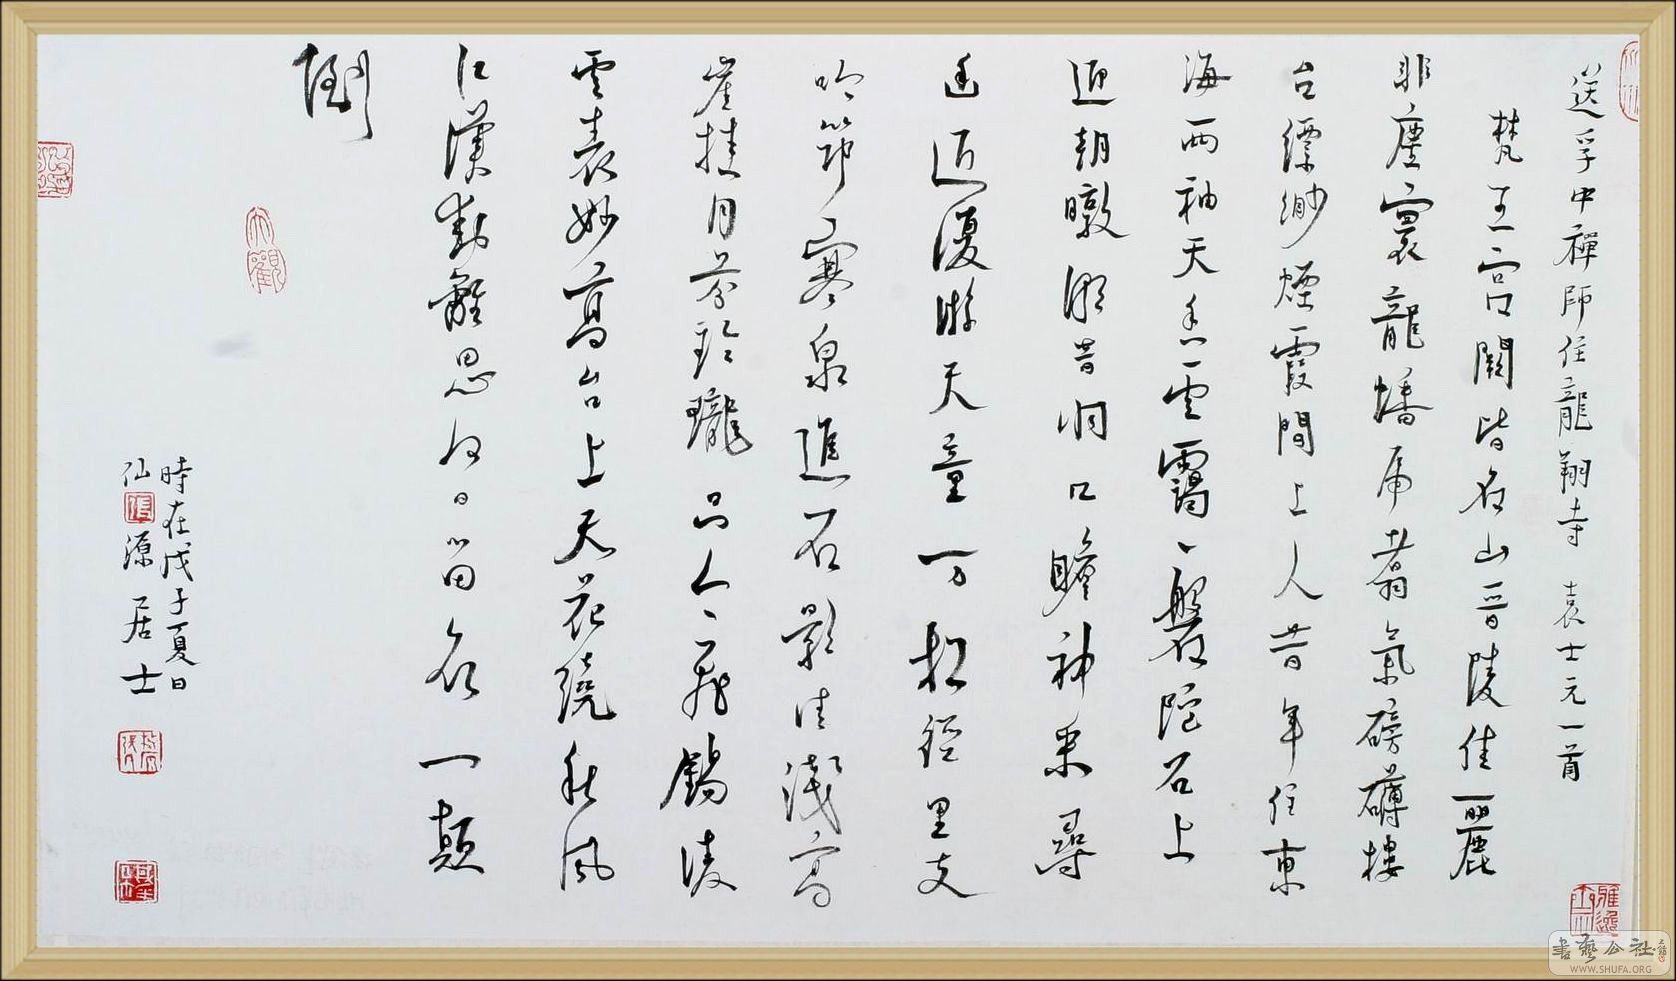 送孚中禪師住龍翔寺 袁士元一首
梵王宮闕皆名山晉陵佳麗
非塵寰龍蟠虎翥氣磅礴樓
台縹緲煙霞間上人昔年住東
海兩袖天香雲靄靄盤陀石上
迎朝暾潮音洞口瞻神采尋
遙近復游天童万松徑里支
吟筇寒泉進石影清淺高
崖挂月芬玲瓏只今飛錫凌
雲表妙高台上天花繞秋風
江漢動離思何日留衣一顛
倒
時在戊子夏日
仙源居士
大觀
書藝公社
WWW.SHUFA.ORG